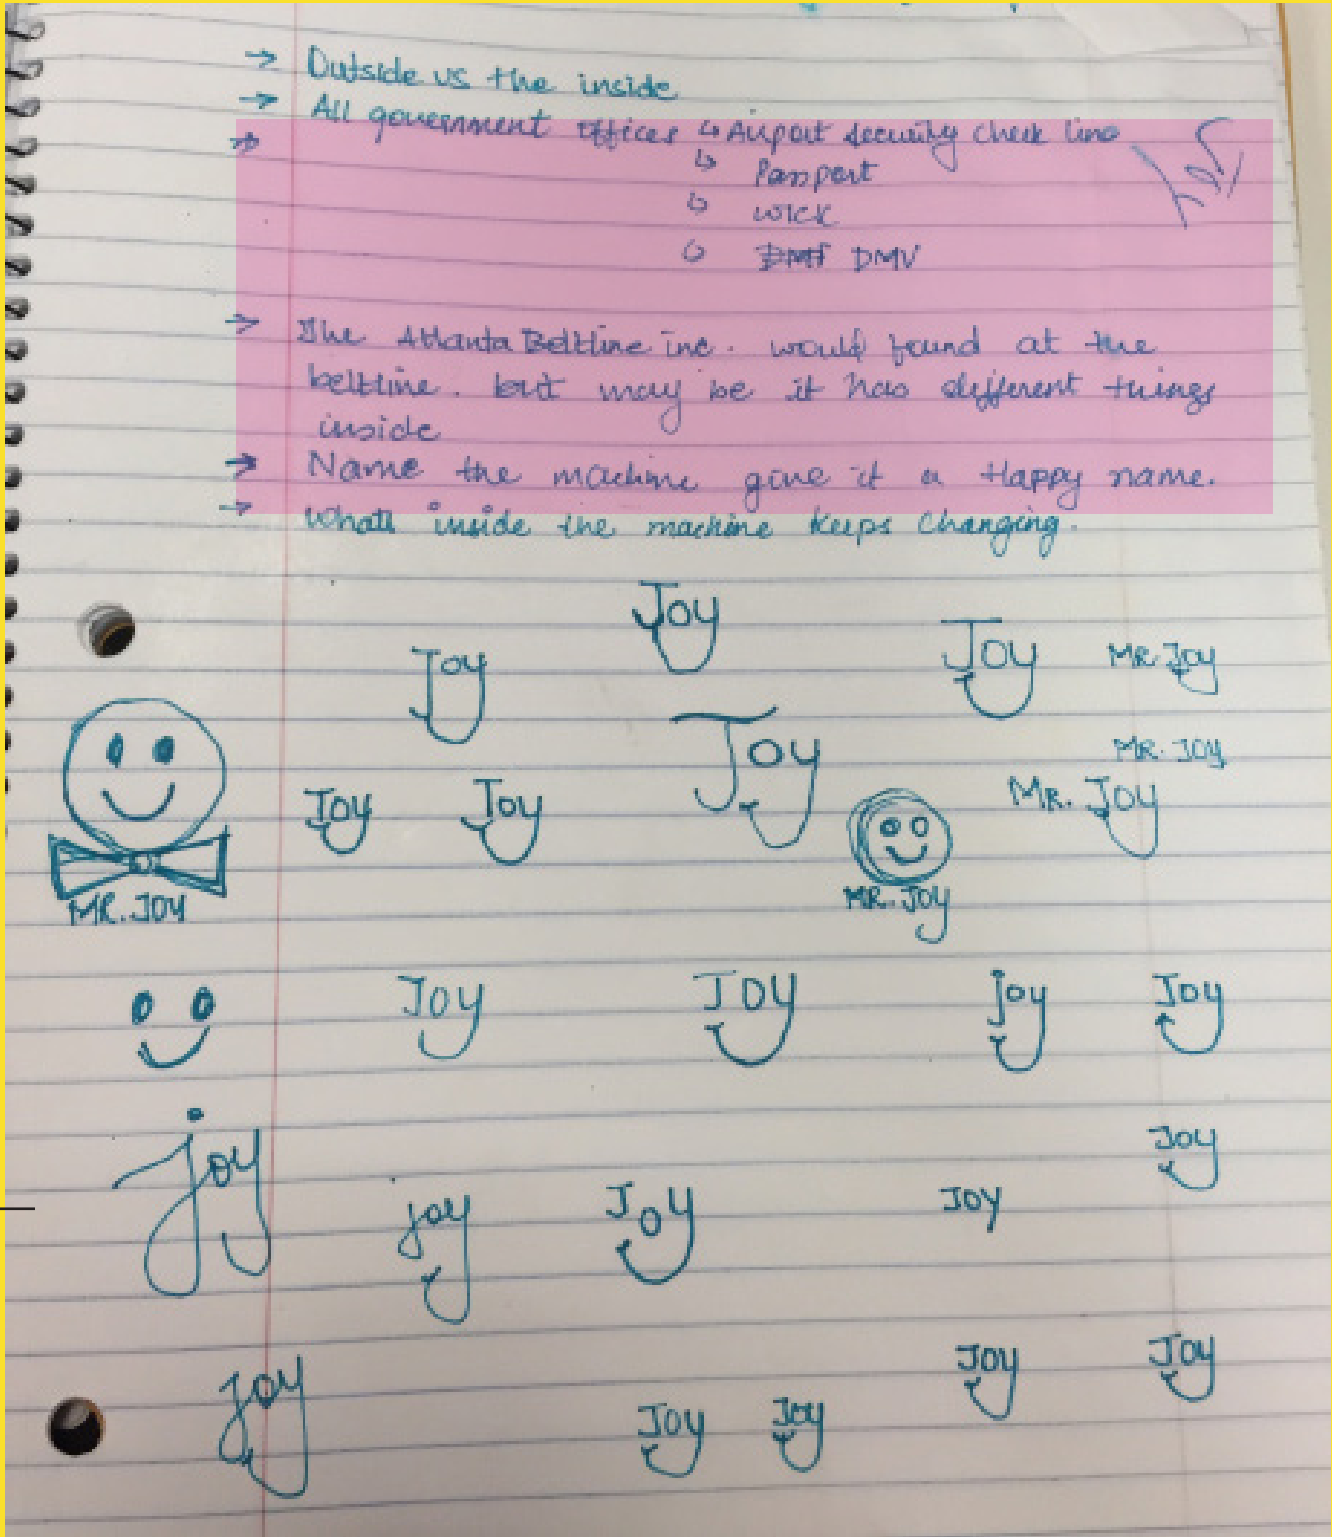 → Outside vs the inside
→ All government offices ↳ Airport security check line
→ ↳ Passport
↳ WICK
↳ DMV
→ The Atlanta Beltline inc. would found at the
beltline. but may be it has different things
inside
→ Name the machine give it a Happy name.
→ Whats inside the machine keeps changing.
Joy
Joy
Joy MR. Joy
Joy
MR. JOY
Joy Joy
MR. Joy
MR. JOY
MR. Joy
Joy JOY joy Joy
joy
Joy
joy Joy JOY
joy
Joy Joy
Joy Joy